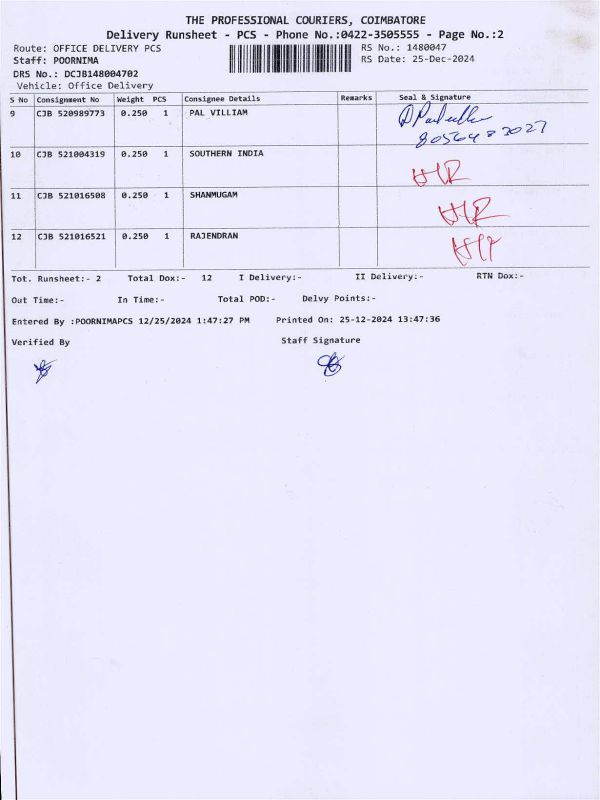 THE PROFESSIONAL COURIERS, COIMBATORE
Delivery Runsheet - PCS - Phone No.:0422-3505555 - Page No.:2
Route: OFFICE DELIVERY PCS RS No.: 1480047
Staff: POORNIMA RS Date: 25-Dec-2024
DRS No.: DCJB148004702
Vehicle: Office Delivery
S No Consignment No Weight PCS Consignee Details Remarks Seal & Signature
9 CJB 520989773 0.250 1 PAL VILLIAM
10 CJB 521004319 0.250 1 SOUTHERN INDIA
11 CJB 521016508 0.250 1 SHANMUGAM
12 CJB 521016521 0.250 1 RAJENDRAN
Tot. Runsheet:- 2 Total Dox:- 12 I Delivery:- II Delivery:- RTN Dox:-
Out Time:- In Time:- Total POD:- Delvy Points:-
Entered By :POORNIMAPCS 12/25/2024 1:47:27 PM Printed On: 25-12-2024 13:47:36
Verified By Staff Signature